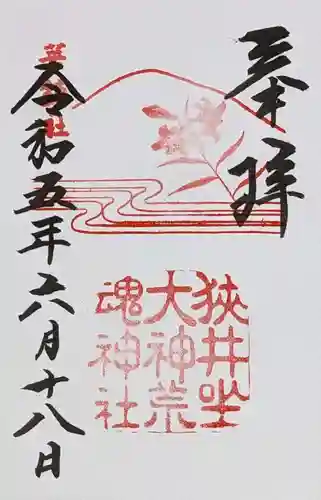 奉拝
狭井坐
大神荒
魂神社
令和五年六月十八日